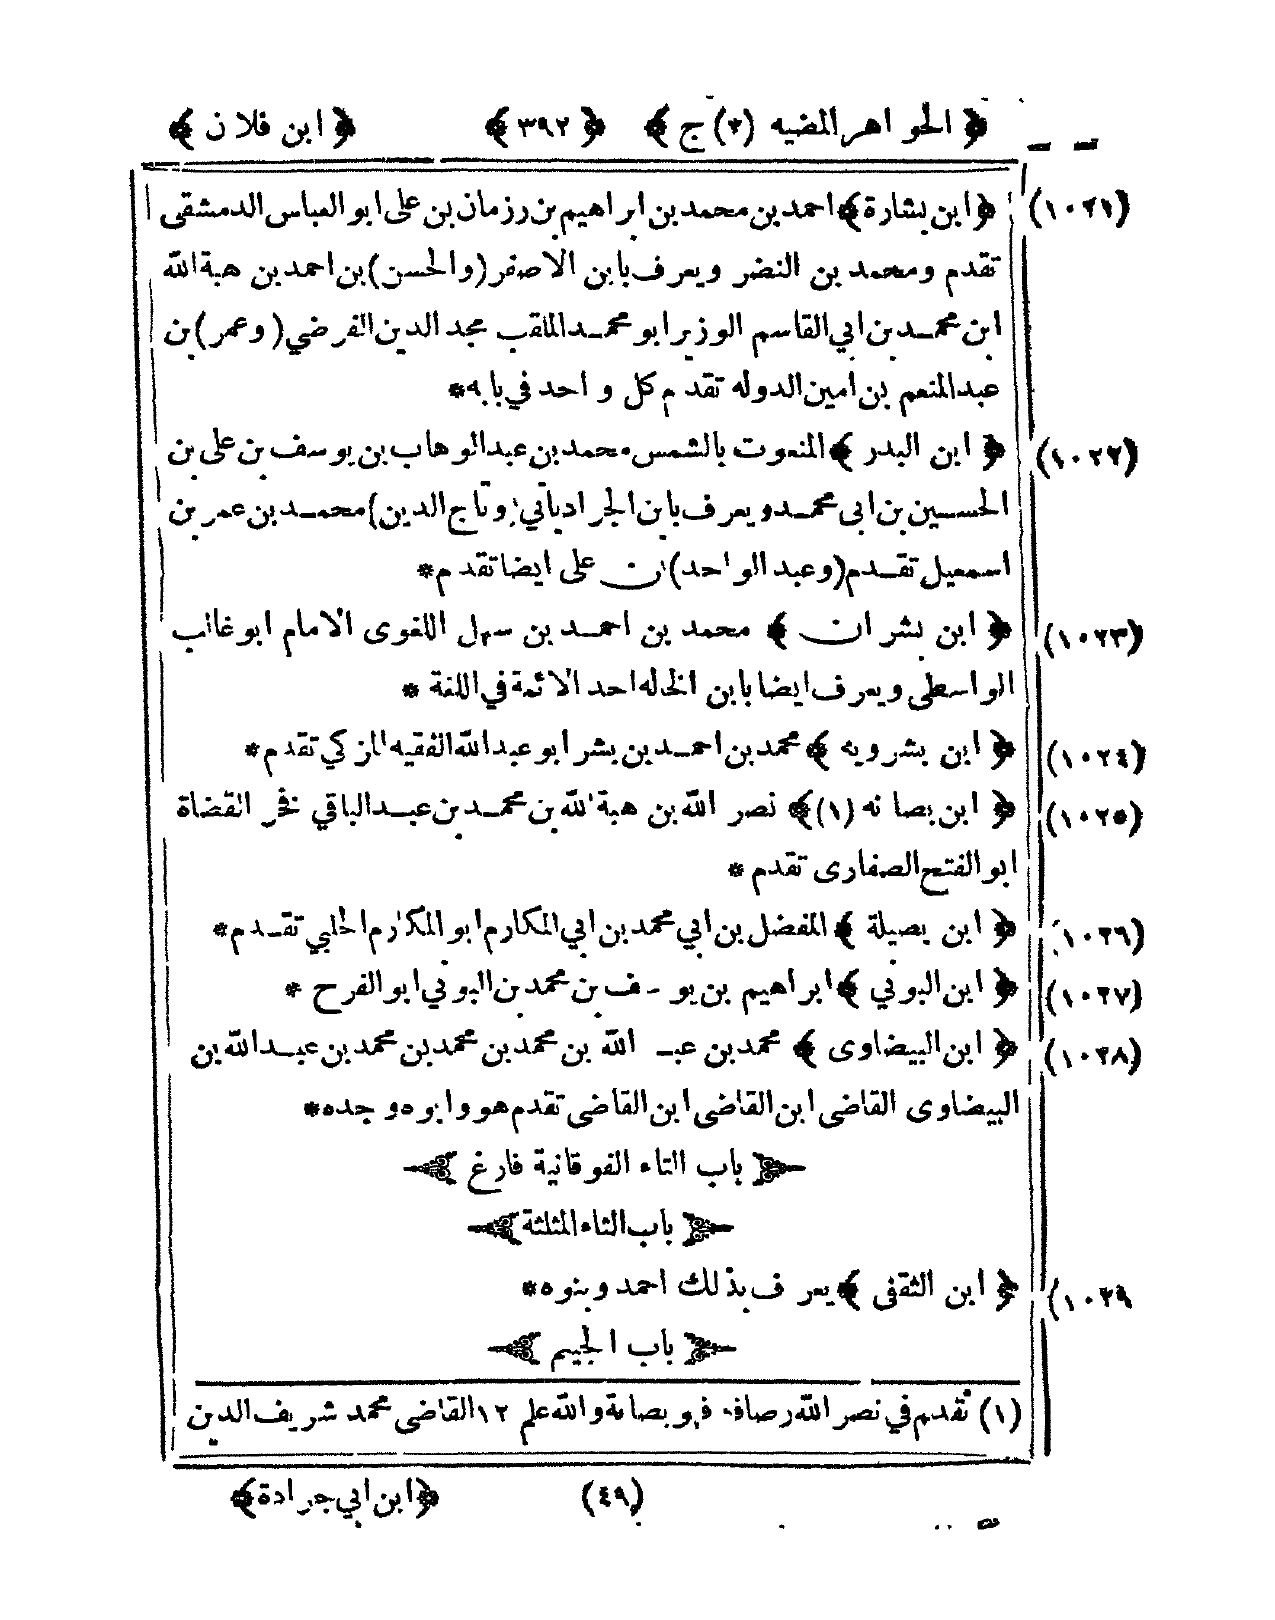 ﴿ الجواهر المضيه (٢) ج ﴾ ﴿ ٣٩٢ ﴾ ﴿ ابن فلان ﴾
(١٠٢١) ﴿ ابن بشارة ﴾ احمد بن محمد بن ابراهيم بن رزمان بن على ابو العباس الدمشقى
تقدم ومحمد بن النضر ويعرف بابن الاصفر (والحسن) بن احمد بن هبة الله
ابن محمد بن ابي القاسم الوزير ابو محمد الملقب مجد الدين الفرضي (وعمر) بن
عبد المنعم بن امين الدوله تقدم كل واحد في بابه*
(١٠٢٢) ﴿ ابن البدر ﴾ المنعوت بالشمس محمد بن عبد الوهاب بن يوسف بن على بن
الحسين بن ابى محمد ويعرف بابن الجرادباتي (وتاج الدين) محمد بن عمر بن
اسمعيل تقدم (وعبد الواحد) بن على ايضا تقدم*
(١٠٢٣) ﴿ ابن بشران ﴾ محمد بن احمد بن سهل اللغوى الامام ابو غالب
الواسطى ويعرف ايضا بابن الخاله احد الائمة في اللغة *
(١٠٢٤) ﴿ ابن بشرويه ﴾ محمد بن احمد بن بشر ابو عبد الله الفقيه المزكي تقدم*
(١٠٢٥) ﴿ ابن بصانه (١) ﴾ نصر الله بن هبة الله بن محمد بن عبد الباقي فخر القضاة
ابو الفتح الصفارى تقدم *
(١٠٢٦) ﴿ ابن بصيلة ﴾ المفضل بن ابي محمد بن ابي المكارم ابو المكارم الحلبي تقدم*
(١٠٢٧) ﴿ ابن البوني ﴾ ابراهيم بن يوسف بن محمد بن البوني ابو الفرح *
(١٠٢٨) ﴿ ابن البيضاوى ﴾ محمد بن عبد الله بن محمد بن محمد بن محمد بن عبد الله بن
البيضاوى القاضى ابن القاضى ابن القاضى تقدم هو وابوه وجده*
باب التاء الفوقانية فارغ
باب الثاء المثلثة
١٠٢٩) ﴿ ابن الثقفى ﴾ يعرف بذلك احمد وبنوه*
باب الجيم
(١) تقدم في نصر الله رصافه فهو بصانة والله علم ١٢ القاضى محمد شريف الدين
(٤٩) ﴿ ابن ابي جرادة ﴾